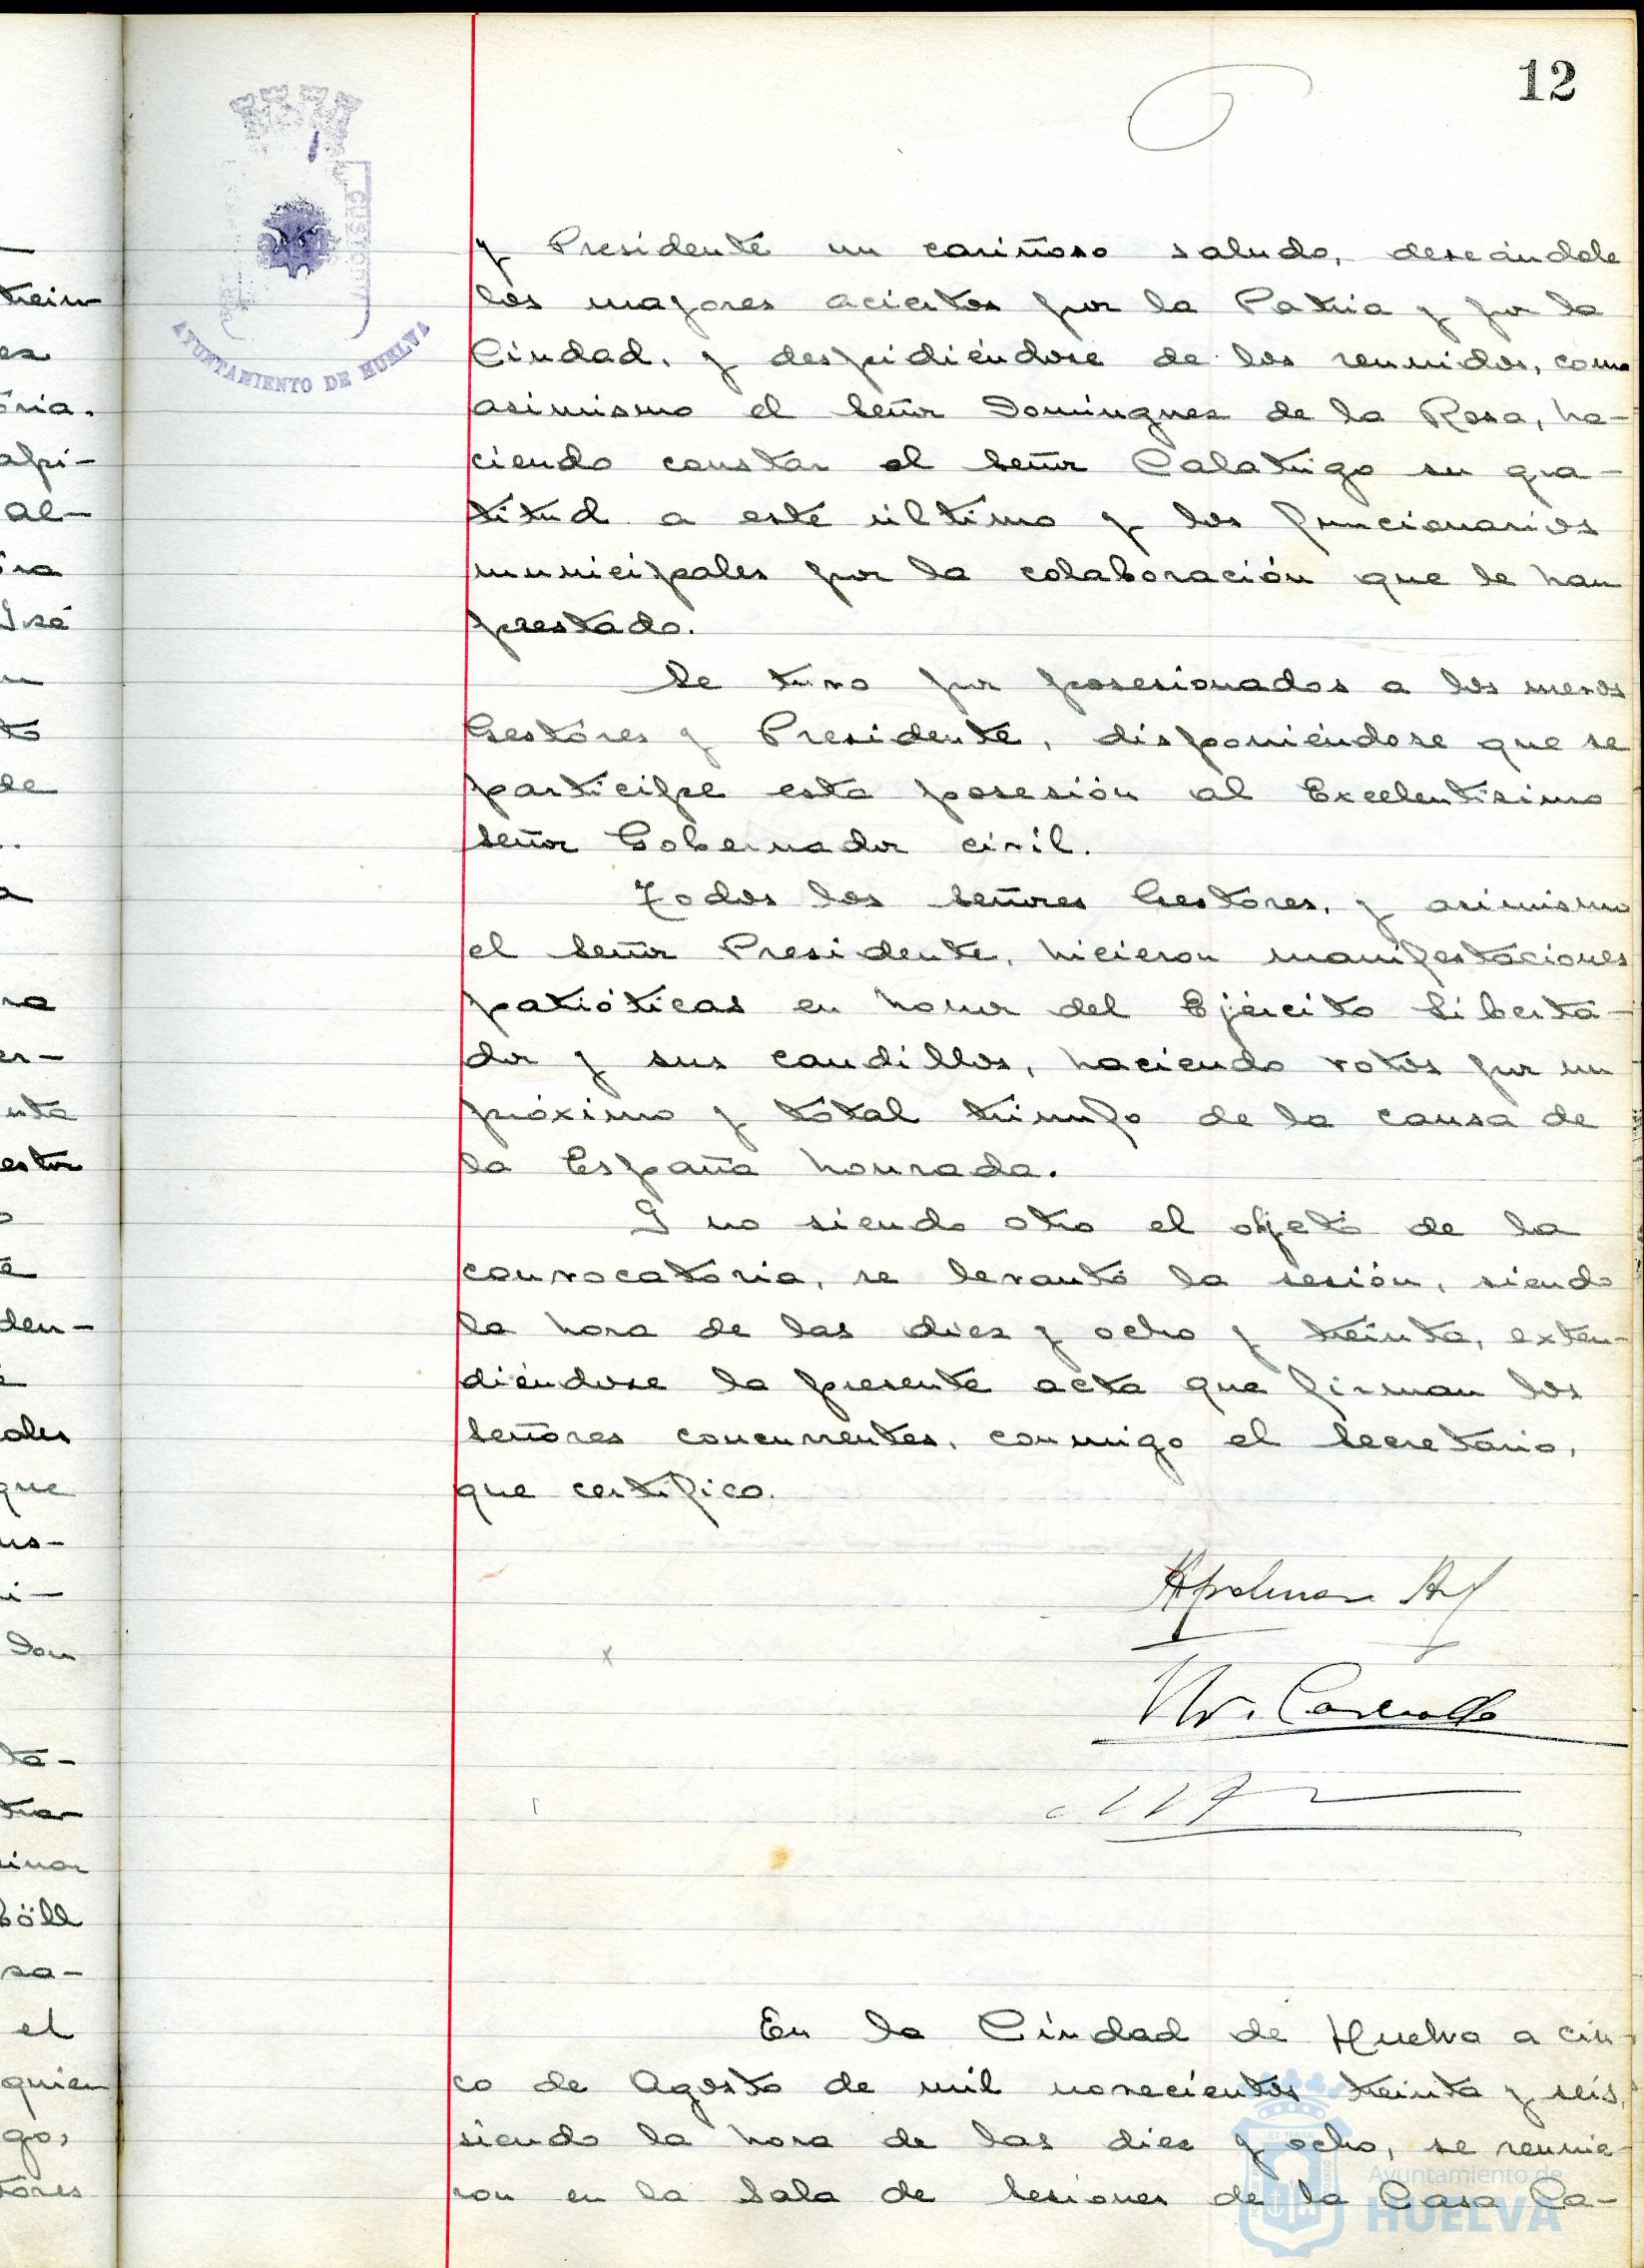 12
AYUNTAMIENTO DE HUELVA
y Presidente un cariñoso saludo, deseándole
los mayores aciertos por la Patria y por la
Ciudad, y despidiéndose de los reunidos, como
asimismo el Señor Domínguez de la Rosa, ha-
ciendo constar el Señor Calatrigo su gra-
titud a este último y los funcionarios
municipales por la colaboración que le han
prestado.
Se tuvo por posesionados a los nuevos
Gestores y Presidente, disponiéndose que se
participe esta posesión al Excelentísimo
Señor Gobernador civil.
Todos los Señores Gestores, y asimismo
el Señor Presidente, hicieron manifestaciones
patrióticas en honor del Ejército Liberta-
dor y sus caudillos, haciendo votos por un
próximo y total triunfo de la causa de
la España honrada.
Y no siendo otro el objeto de la
convocatoria, se levantó la sesión, siendo
la hora de las diez y ocho y treinta, exten-
diéndose la presente acta que firman los
Señores concurrentes, conmigo el Secretario,
que certifico.
En la Ciudad de Huelva a cin-
co de Agosto de mil novecientos treinta y seis,
siendo la hora de las diez y ocho, se reunie-
ron en la Sala de Sesiones de la Casa Ca-
Ayuntamiento de
HUELVA